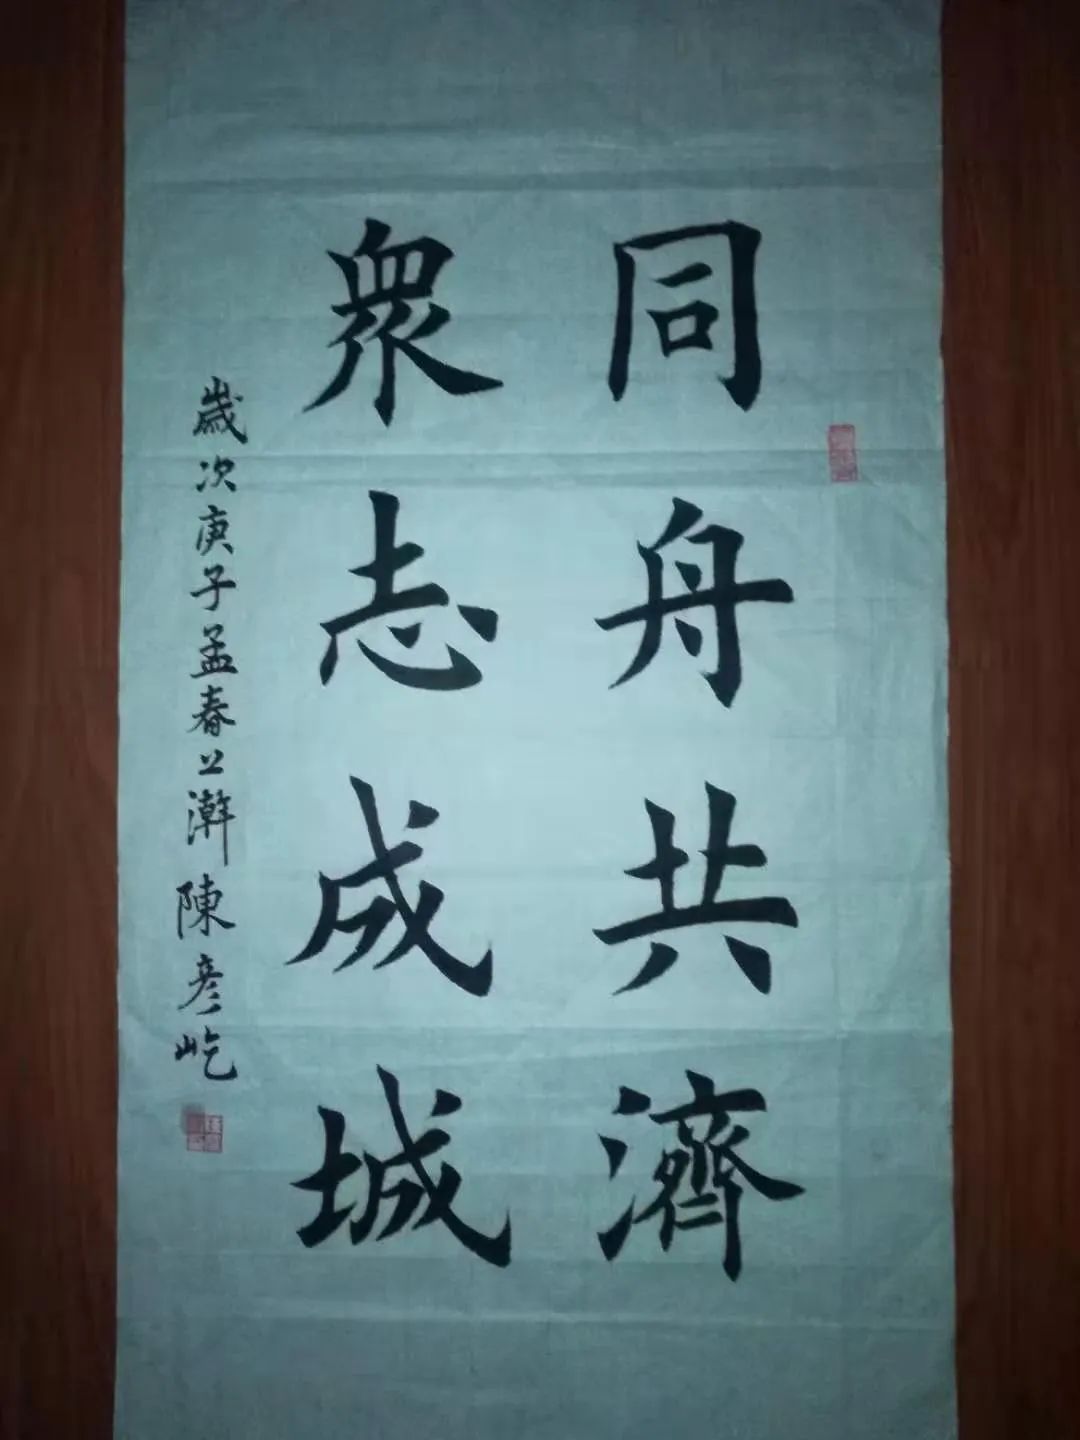 同舟共濟
眾志成城
歲次庚子孟春上澣陳彥屹